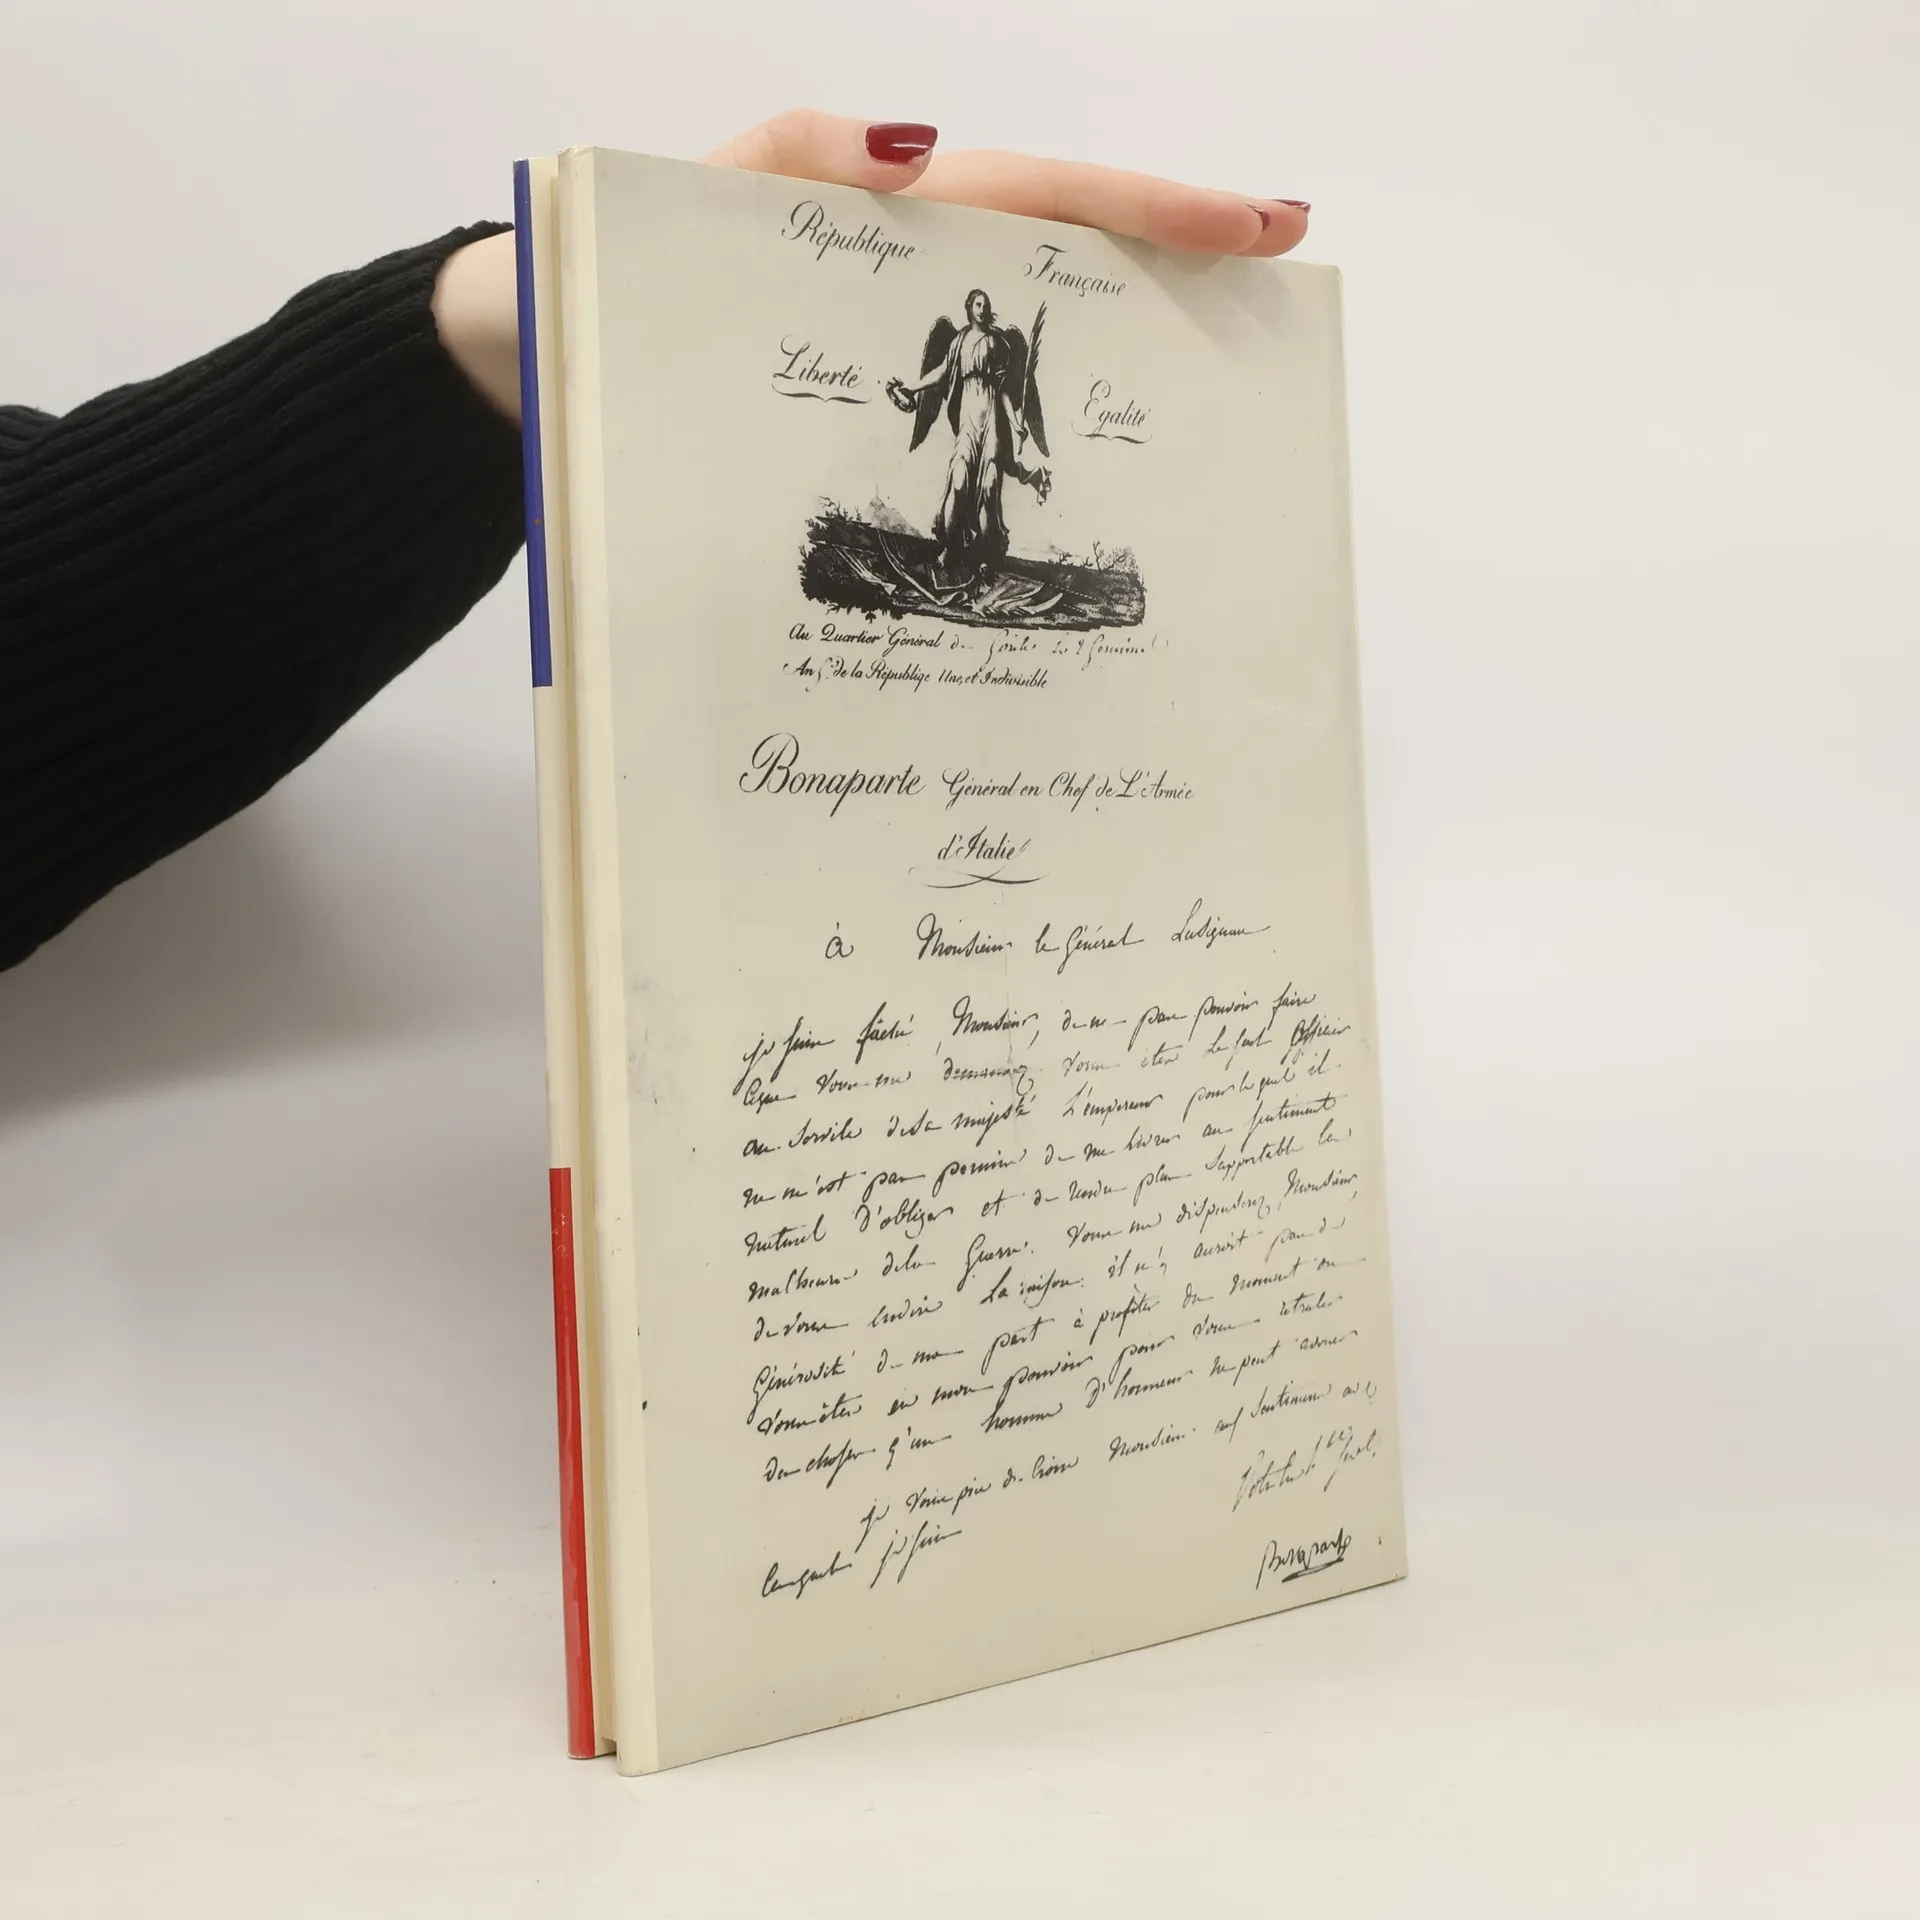 République Française
Liberté Égalité
Au Quartier Général de le Germinal
An 5.e de la Républiqe Une, et Indivisible
Bonaparte Général en Chef de L'Armée
d'Italie
à Monsieur le Général Lusignan
je suis fâché, Monsieur, de ne pas pouvoir faire
ceque vous me demandez vous êtes le seul officier
au service de sa majesté L'empereur pour lequel il
ne m'est pas permis de me livrer au sentiment
naturel d'obliger et de rendre plus supportable les
malheurs dela Guerre. vous me dispenserez, Monsieur,
de vous en dire La raison: il n'y auroit pas de
Générosité de ma part à profiter du moment où
vous êtes en mon pouvoir pour vous
des choses q'un homme d'honneur ne peut avouer
je vous prie de croire Monsieur aux sentimens avec
lesquels je suis
Bonaparte